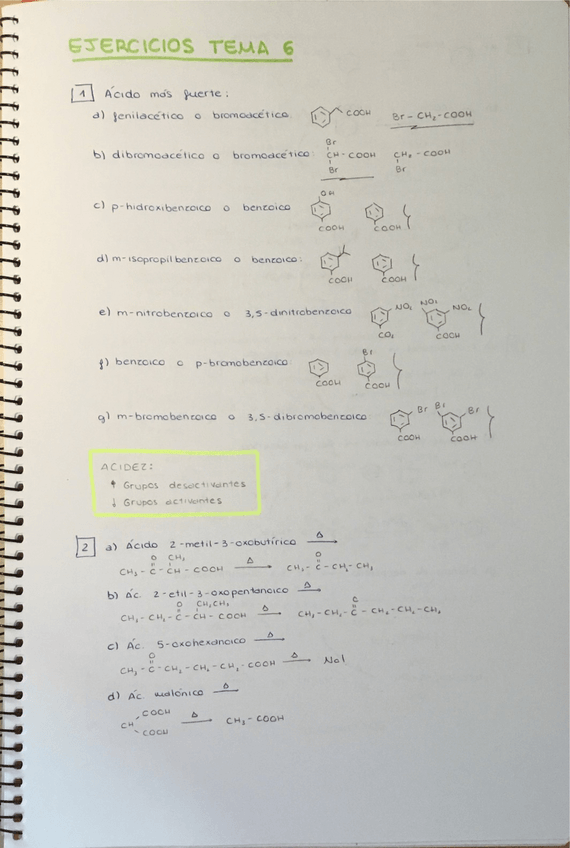 EJERCICIOS TEMA 6
1 Ácido más fuerte:
a) fenilacético o bromoacético COOH Br-CH₂-COOH
b) dibromoacético o bromoacético: Br CH-COOH Br CH₂-COOH Br
c) p-hidroxibenzoico o benzoico OH COOH COOH
d) m-isopropilbenzoico o benzoico: COOH COOH
e) m-nitrobenzoico o 3,5-dinitrobenzoico NO₂ CO₂ NO₂ NO₂ COOH
f) benzoico o p-bromobenzoico COOH Br COOH
g) m-bromobenzoico o 3,5-dibromobenzoico Br COOH Br Br COOH
ACIDEZ:
↑ Grupos desactivantes
↓ Grupos activantes
2 a) Ácido 2-metil-3-oxobutírico Δ→
O CH₃ O
CH₃-C-CH-COOH Δ→ CH₃-C-CH₂-CH₃
b) Ác. 2-etil-3-oxopentanoico Δ→
O CH₂CH₃
CH₃-CH₂-C-CH-COOH Δ→ CH₃-CH₂-C-CH₂-CH₂-CH₃
c) Ác. 5-oxohexanoico Δ→
O
CH₃-C-CH₂-CH₂-CH₂-COOH Δ→ No!
d) Ác. malónico Δ→
COOH
CH Δ→ CH₃-COOH
COOH